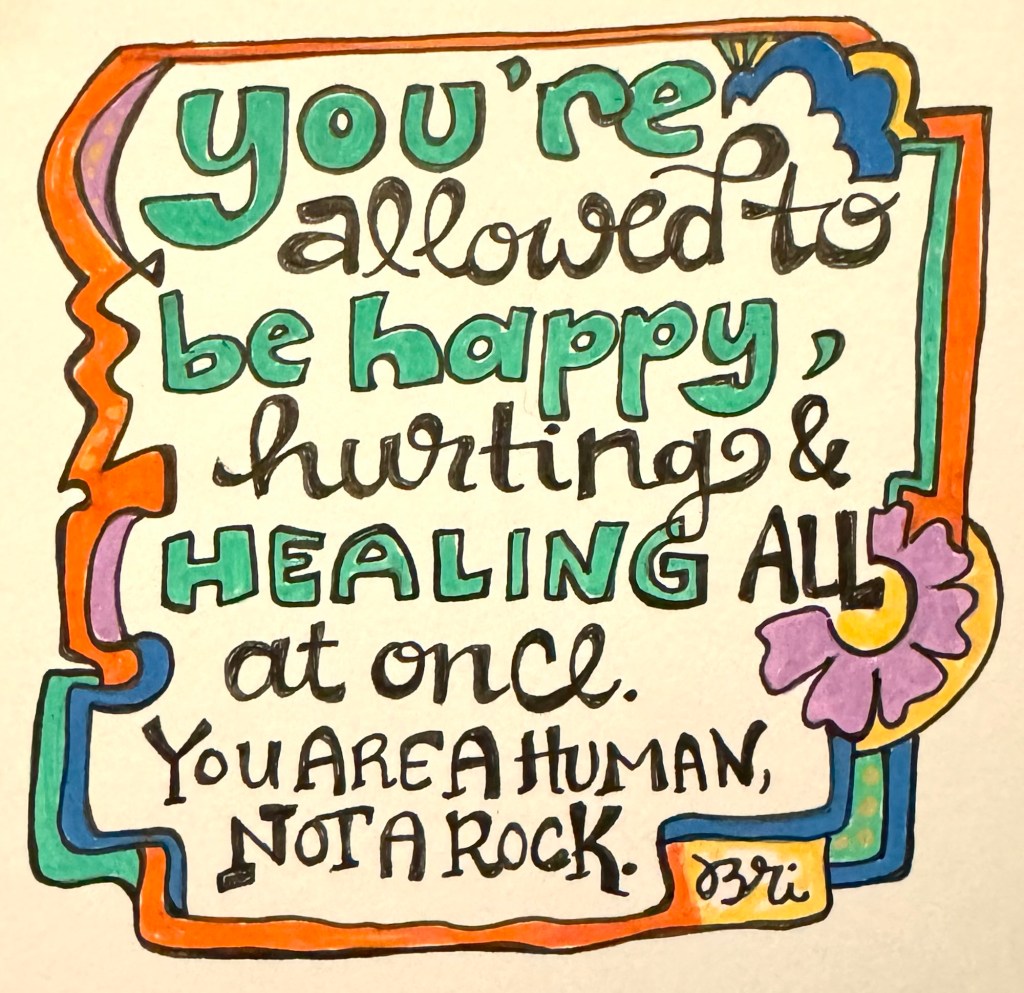 you're
allowed to
be happy,
hurting &
HEALING ALL
at once.
YOU ARE A HUMAN,
NOT A ROCK.
Bri